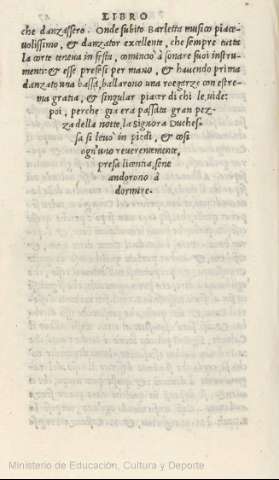 LIBRO
che danzassero. Onde subito Barletta musico piace-
uolissimo, & danzator excellente, che sempre tutta
la corte teneua in festa, cominciò à sonare suoi instru-
menti: & esse presesi per mano, & hauendo prima
danzato una bassa, ballarono una roegarze con estre-
ma gratia, & singular piacer di chi le uide:
poi, perche gia era passata gran pez-
za della notte, la Signora Duches-
sa si leuò in piedi, & cosi
ogn'uno reuerentemente,
presa licentia, sene
andorono à
dormire.
Ministerio de Educación, Cultura y Deporte